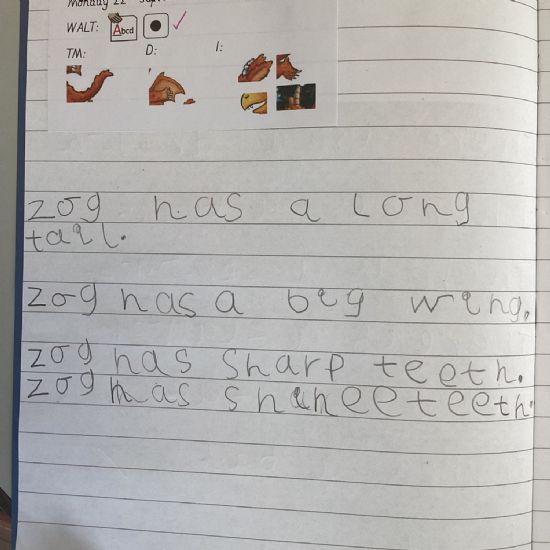 Monday 22
WALT: Abcd
TM: D: I:
zog has a long
tail.
zog has a big wing.
zog has sharp teeth.
zog has shinee teeth.